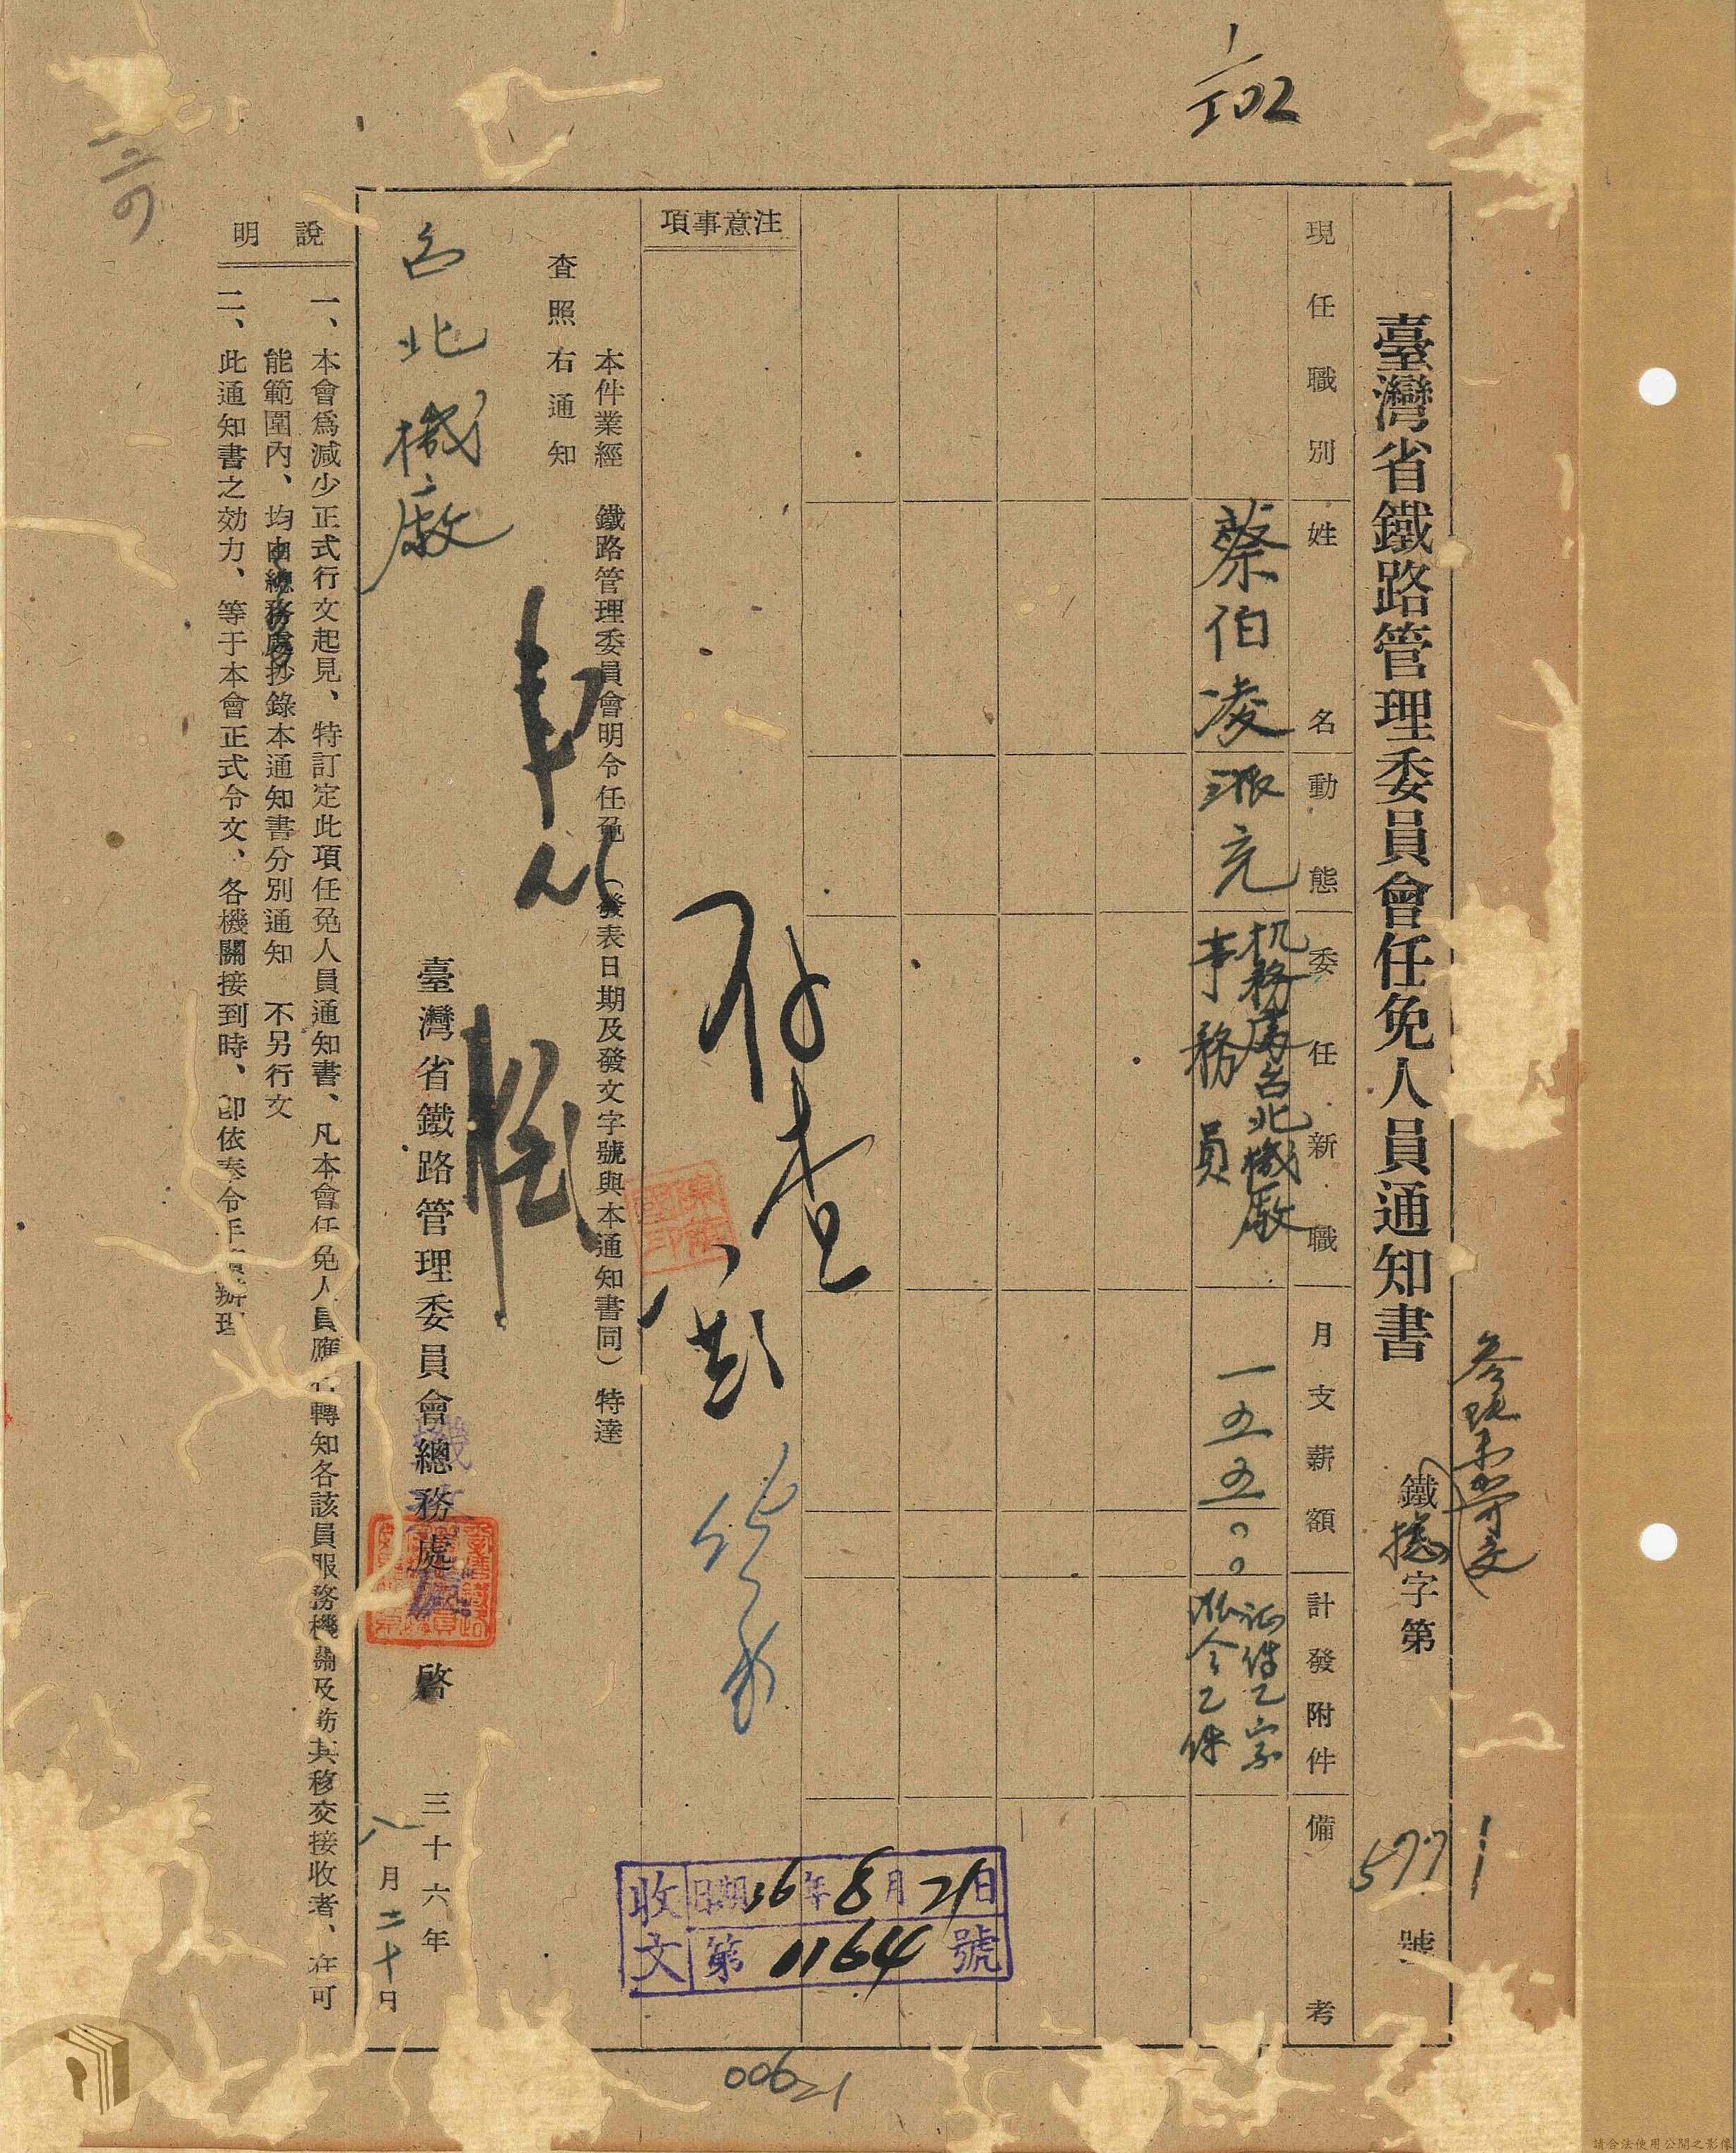 臺灣省鐵路管理委員會任免人員通知書
鐵 字第5771號
現任職別
姓名
動態
委任新職
月支薪額
計發附件
備考
蔡伯凌
派充
机務處台北機廠
事務員
一五五〇〇
証件乙宗
派令乙件
注意事項
存查
本件業經 鐵路管理委員會明令任免（發表日期及發文字號與本通知書同）特達
查照右通知
台北機廠
臺灣省鐵路管理委員會總務處 啓
三十六年
八月二十日
說明
一、本會爲減少正式行文起見、特訂定此項任免人員通知書、凡本會任免人員應 轉知各該員服務機關及飭其移交接收者、在可
能範圍內、均由總務處抄錄本通知書分別通知 不另行文
二、此通知書之効力、等于本會正式令文、各機關接到時、卽依 令 辦理
收文
日期36年8月21日
第01164號
00621
請合法使用公開之影像